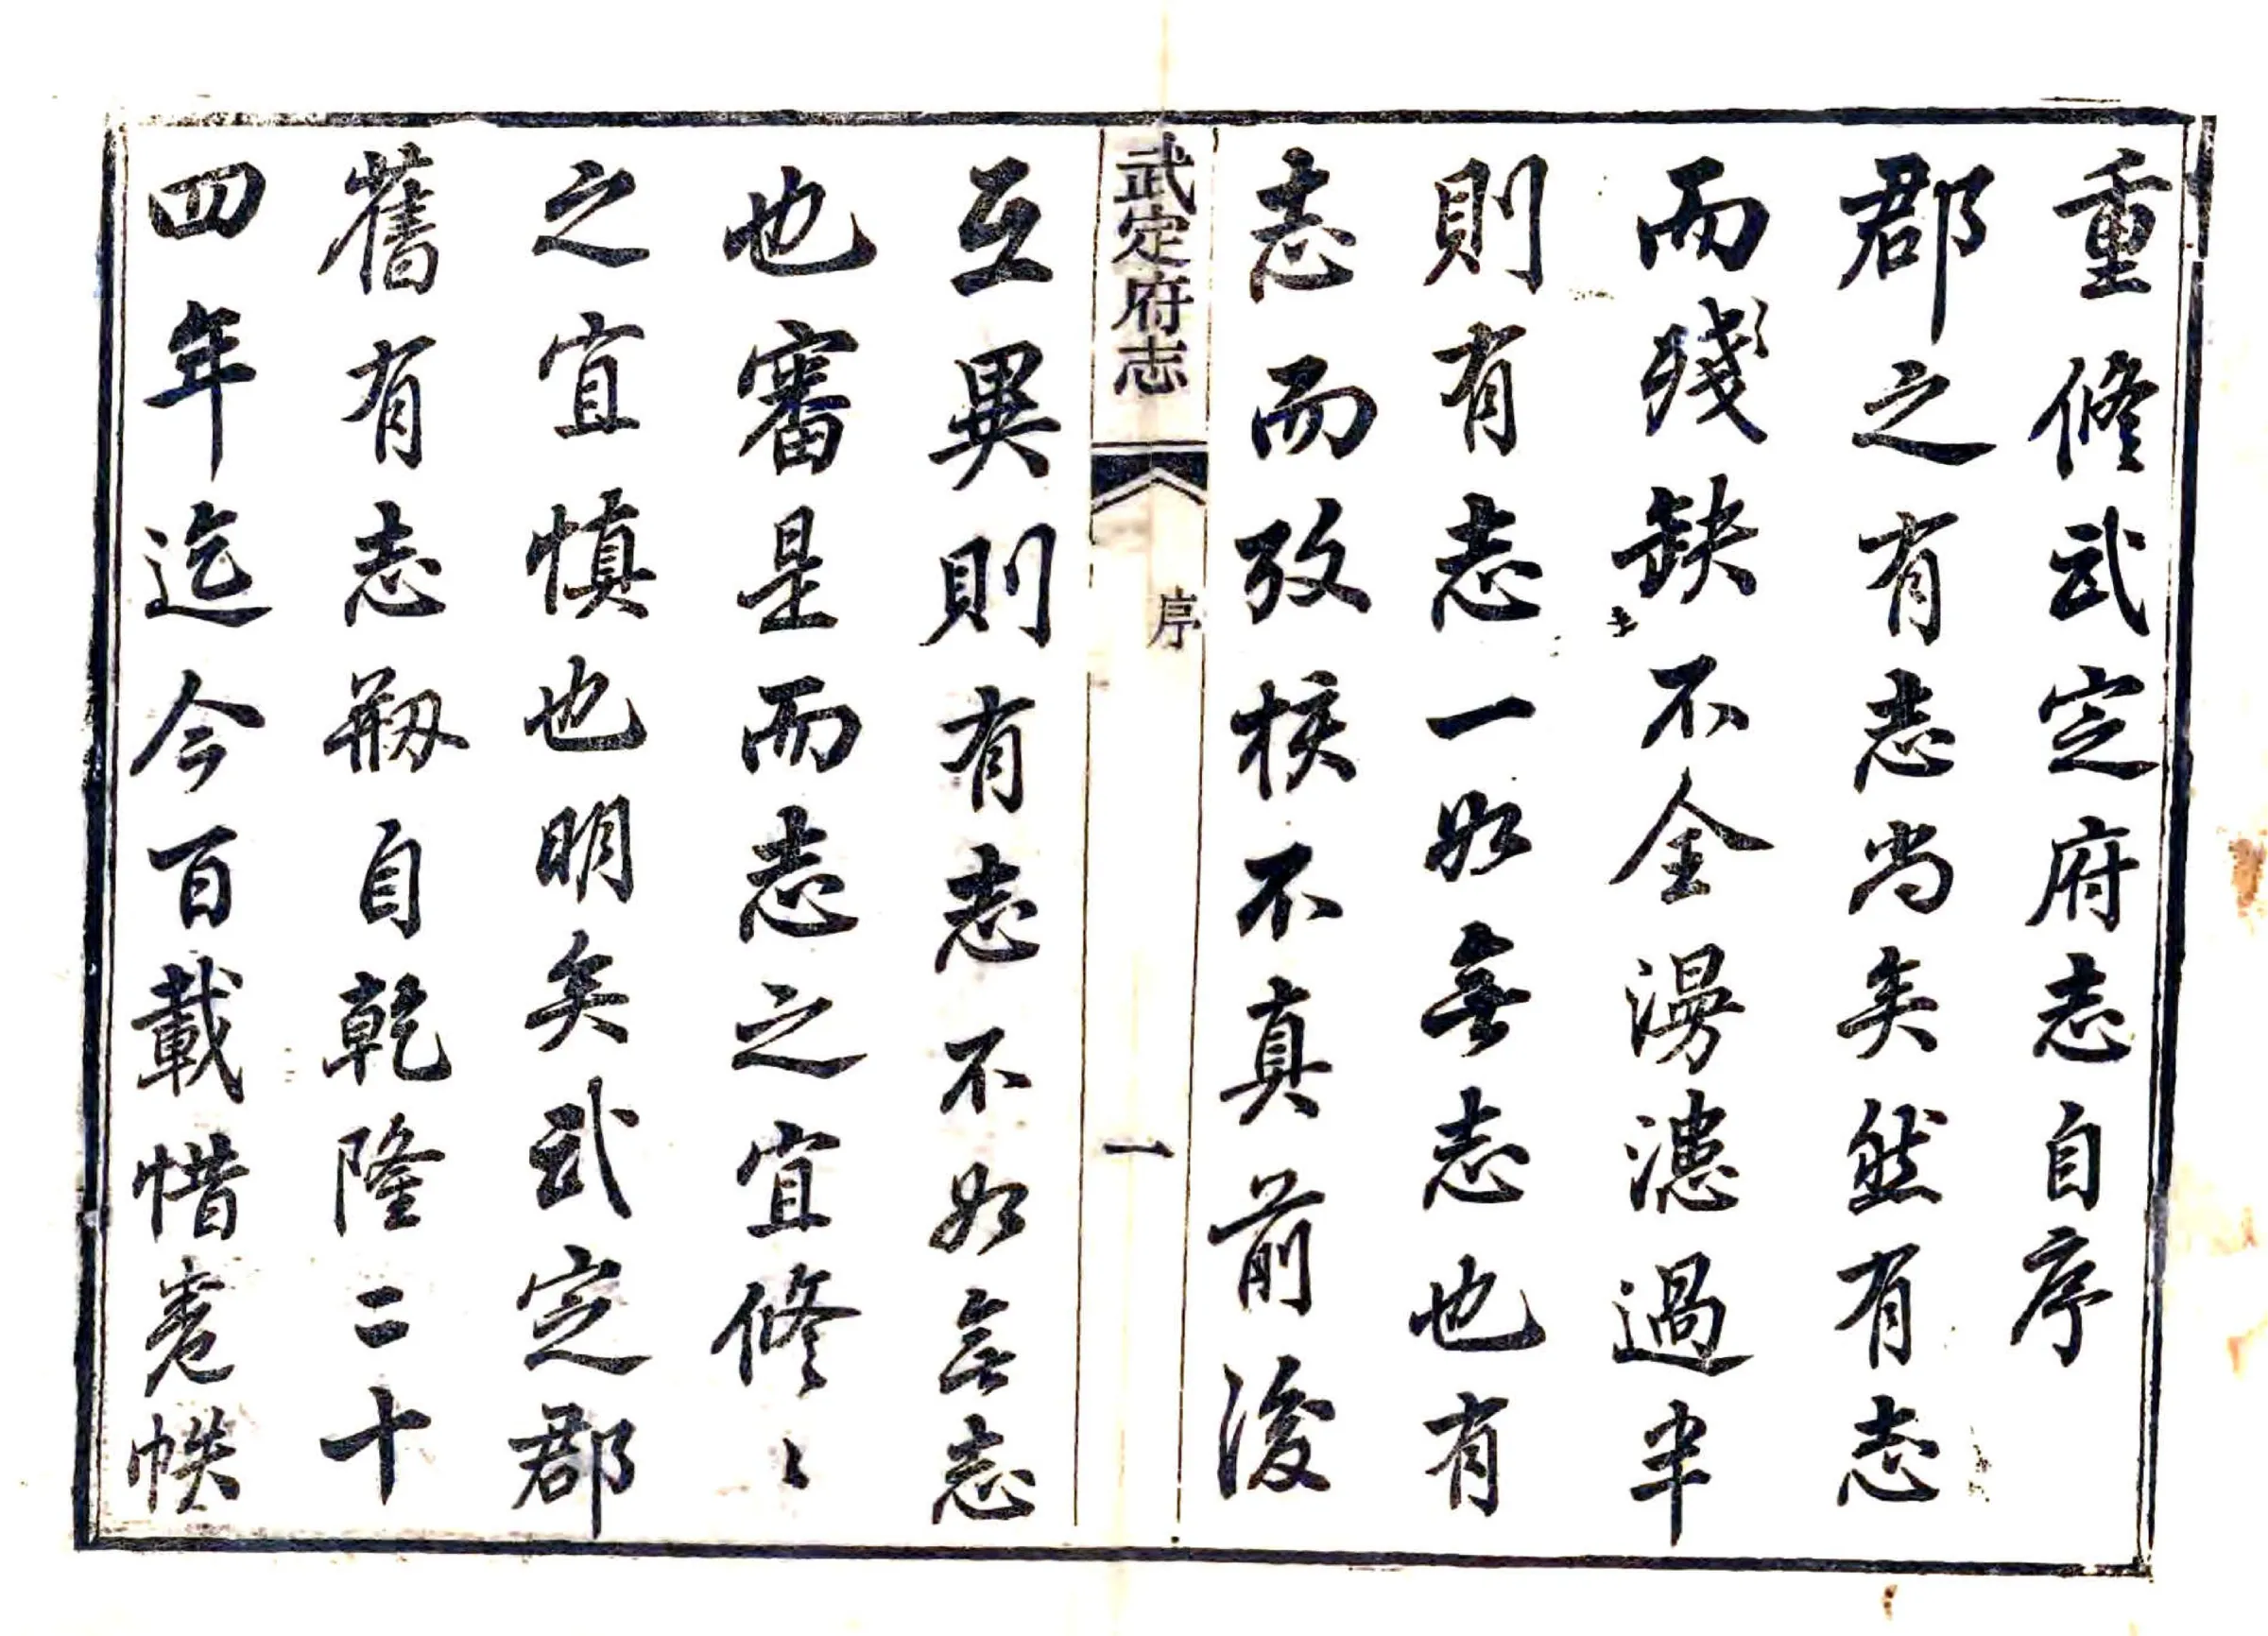 重修武定府志自序
郡之有志尚矣然有志
而殘缺不全漫漶過半
則有志一如無志也有
志而攷核不真前後
武定府志
序
一
互異則有志不如無志
也審是而志之宜修〻
之宜慎也明矣武定郡
舊有志刱自乾隆二十
四年迄今百載惜卷帙